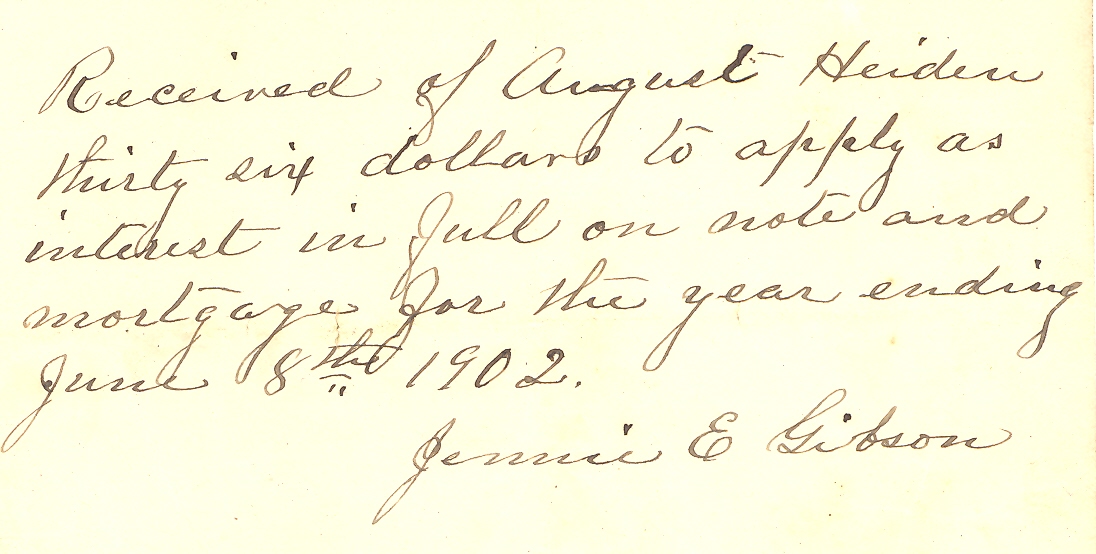 Received of August Heiden
thirty six dollars to apply as
interest in full on note and
mortgage for the year ending
June 8th 1902.
Jennie E Gibson